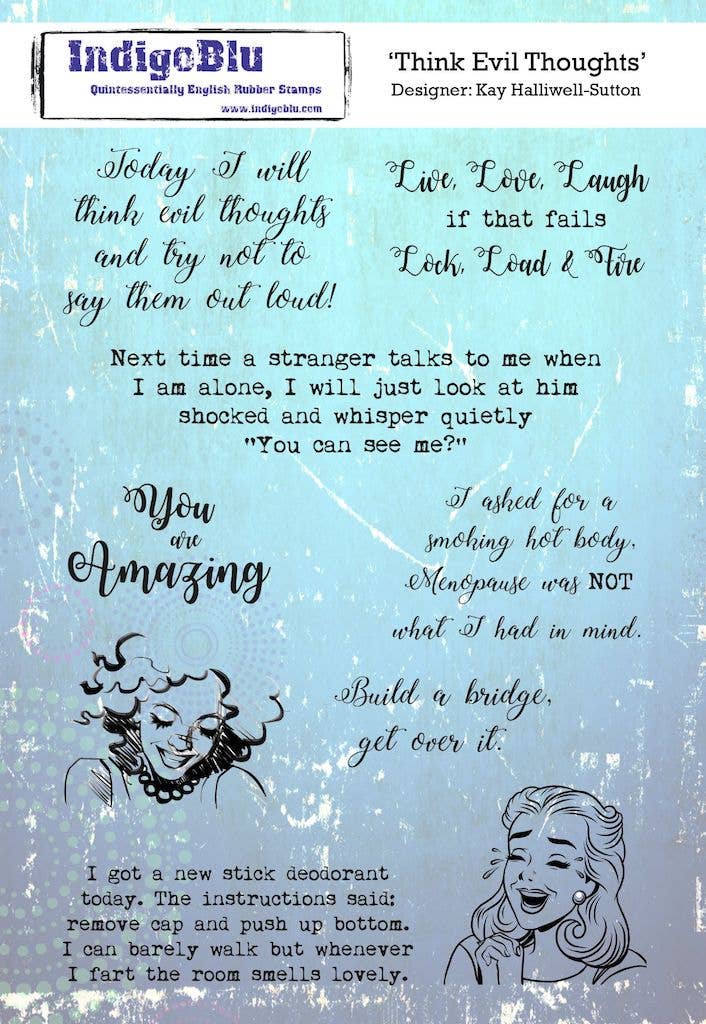 IndigoBlu
Quintessentially English Rubber Stamps
www.indigoblu.com
‘Think Evil Thoughts’
Designer: Kay Halliwell-Sutton
Today I will
think evil thoughts
and try not to
say them out loud!
Live, Love, Laugh
if that fails
Lock, Load & Fire
Next time a stranger talks to me when
I am alone, I will just look at him
shocked and whisper quietly
"You can see me?"
You
are
Amazing
I asked for a
smoking hot body,
Menopause was NOT
what I had in mind.
Build a bridge,
get over it.
I got a new stick deodorant
today. The instructions said:
remove cap and push up bottom.
I can barely walk but whenever
I fart the room smells lovely.